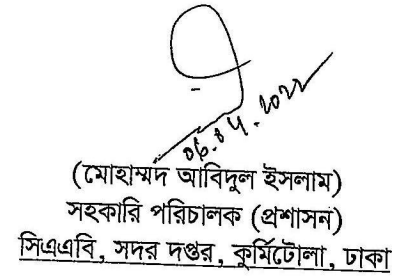 ০৬.০৪.২০২২
(মোহাম্মদ আবিদুল ইসলাম)
সহকারি পরিচালক (প্রশাসন)
সিএএবি, সদর দপ্তর, কুর্মিটোলা, ঢাকা